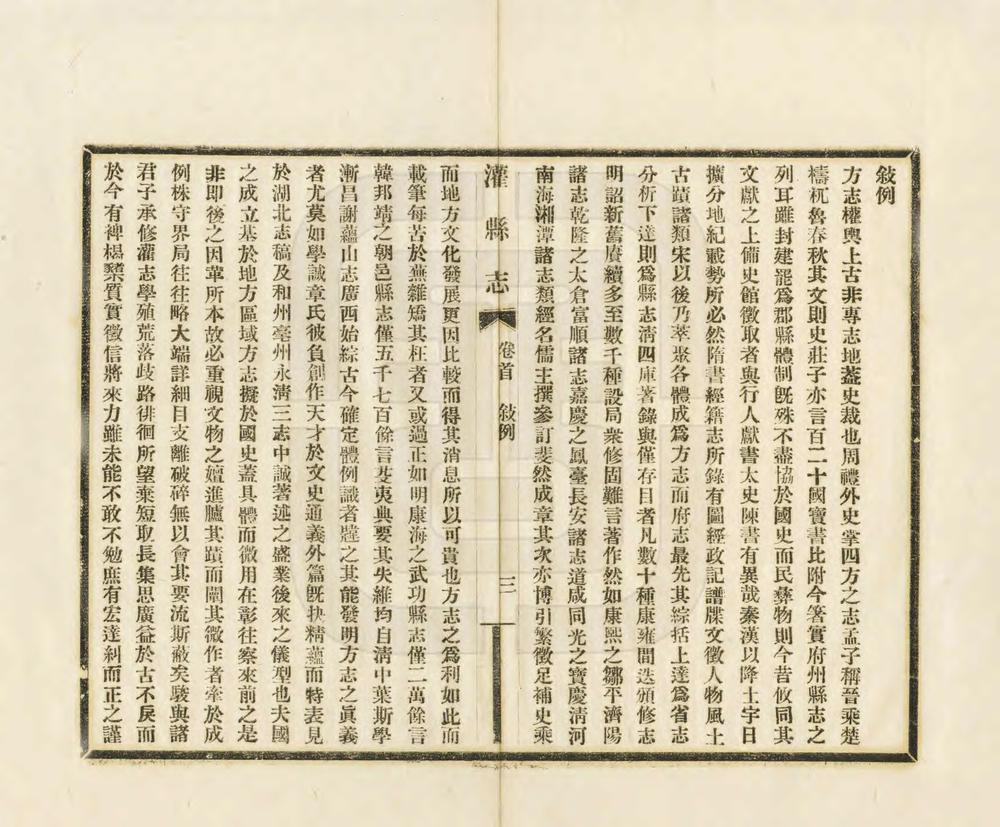 敍例
方志權輿上古非專志地葢史裁也周禮外史掌四方之志孟子稱晉乘楚
檮杌魯春秋其文則史莊子亦言百二十國寶書比附今箸實府州縣志之
列耳雖封建罷爲郡縣體制旣殊不盡協於國史而民彝物則今昔攸同其
文獻之上備史館徵取者與行人獻書太史陳書有異哉秦漢以降土宇日
擴分地紀載勢所必然隋書經籍志所錄有圖經政記譜牒文徵人物風土
古蹟諸類宋以後乃萃聚各體成爲方志而府志最先其綜括上達爲省志
分析下達則爲縣志淸四庫著錄與僅存目者凡數十種康雍間迭頒修志
明詔新舊賡續多至數千種設局衆修固難言著作然如康熙之鄒平濟陽
諸志乾隆之太倉富順諸志嘉慶之鳳臺長安諸志道咸同光之寶慶淸河
南海湘潭諸志類經名儒主撰參訂斐然成章其次亦博引繁徵足補史乘
灌縣志 卷首 敍例 三
而地方文化發展更因比較而得其消息所以可貴也方志之爲利如此而
載筆每苦於蕪雜矯其枉者又或過正如明康海之武功縣志僅二萬餘言
韓邦靖之朝邑縣志僅五千七百餘言芟夷典要其失維均自淸中葉斯學
漸昌謝蘊山志廣西始綜古今確定體例識者韙之其能發明方志之眞義
者尤莫如學誠章氏彼負創作天才於文史通義外篇旣抉精蘊而特表見
於湖北志稿及和州亳州永淸三志中誠著述之盛業後來之儀型也夫國
之成立基於地方區域方志擬於國史蓋具體而微用在彰往察來前之是
非卽後之因革所本故必重視文物之嬗進臚其蹟而闡其微作者牽於成
例株守界局往往略大端詳細目支離破碎無以會其要流斯蔽矣駿與諸
君子承修灌志學殖荒落歧路徘徊所望棄短取長集思廣益於古不戾而
於今有裨楬櫫質實徵信將來力雖未能不敢不勉庶有宏達糾而正之謹